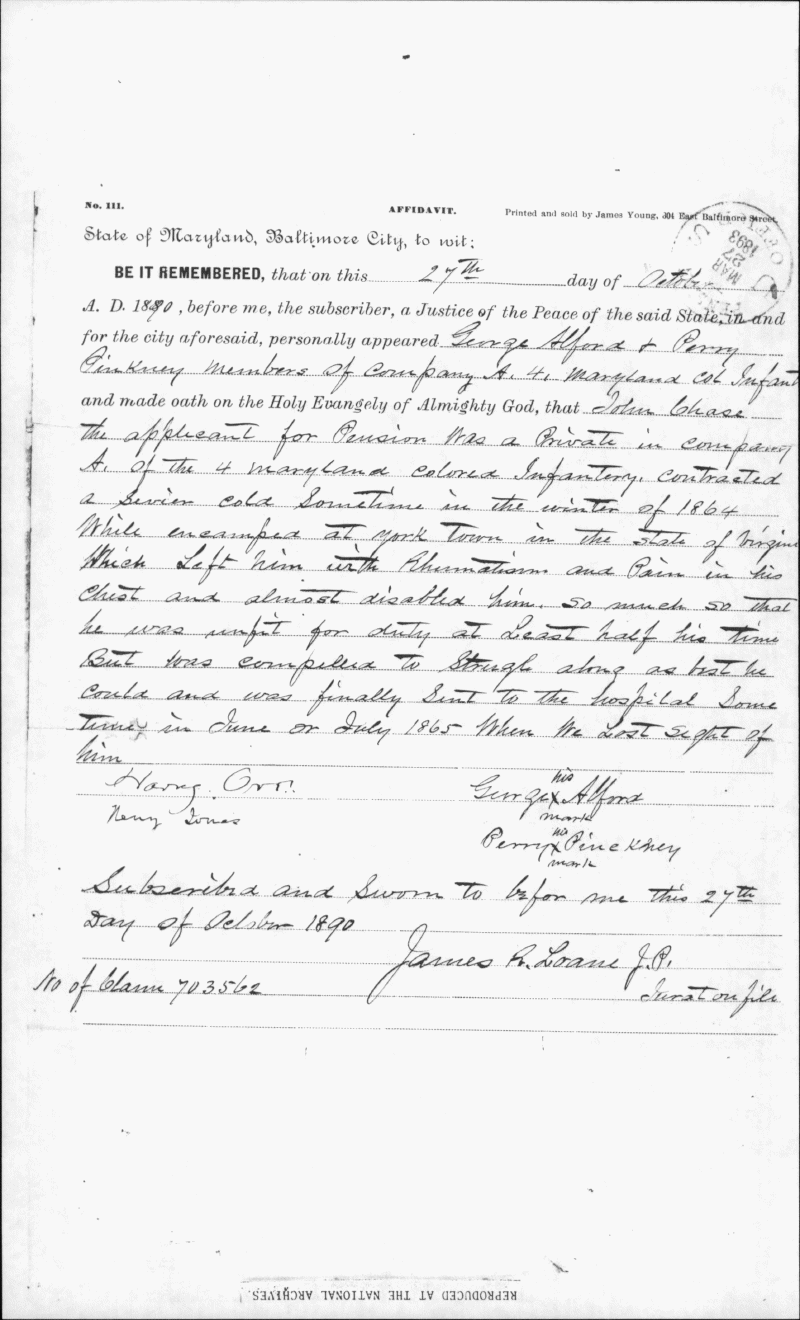 No. 111.
AFFIDAVIT.
Printed and sold by James Young, 304 East Baltimore Street.
State of Maryland, Baltimore City, to wit:
BE IT REMEMBERED, that on this 27th day of October
A. D. 1890, before me, the subscriber, a Justice of the Peace of the said State, in and
for the city aforesaid, personally appeared George Alford & Perry
Pinkney members of Company A. 4. Maryland Col Infant
and made oath on the Holy Evangely of Almighty God, that John Chase
the applicant for Pension Was a Private in company
A. of the 4 Maryland Colored Infantery. Contracted
a Sevier cold Sometime in the winter of 1864
While encamped at york Town in the State of Virgini
Which Left him with Rhumatism and Pain in his
Chest and almost disabled him. so much so that
he was unfit for duty at Least half his time
But was compelled to Strugle along as best he
Could and was finally Sent to the hospital Some
time in June or July 1865 When We Lost Sight of
him
Henry Jones
George his X mark Alford
Perry his X mark Pinckney
Subscribed and Sworn to befor me this 27th
Day of October 1890
James R. Loane J.P.
No of Claim 703562
on file
MAR 27 1893
REPRODUCED AT THE NATIONAL ARCHIVES.